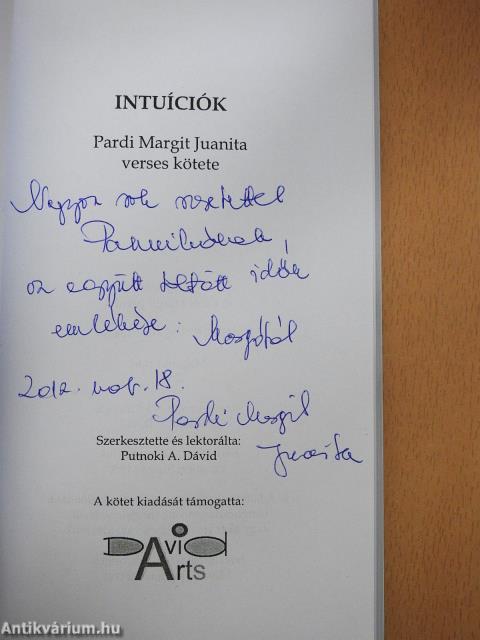 INTUÍCIÓK
Pardi Margit Juanita
verses kötete
Nagyon sok szeretettel
Pannikának,
az együtt töltött idők
emlékére: Margótól
2012. nov. 18.
Pardi Margit
Juanita
Szerkesztette és lektorálta:
Putnoki A. Dávid
A kötet kiadását támogatta:
David
Arts
Antikvárium.hu